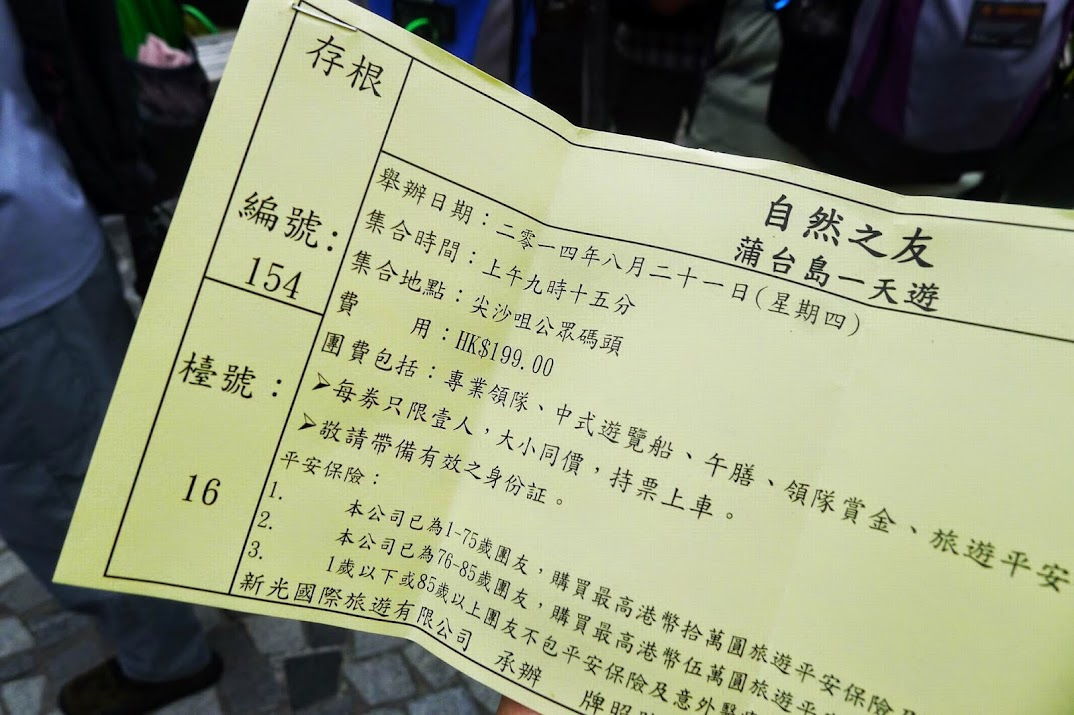 存根
編號：
154
檯號：
16
自然之友
蒲台島一天遊
舉辦日期：二零一四年八月二十一日(星期四)
集合時間：上午九時十五分
集合地點：尖沙咀公眾碼頭
費　　用：HK$199.00
團費包括：專業領隊、中式遊覽船、午膳、領隊賞金、旅遊平安
➢每券只限壹人，大小同價，持票上車。
➢敬請帶備有效之身份証。
平安保險：
1. 本公司已為1-75歲團友，購買最高港幣拾萬圓旅遊平安保險及
2. 本公司已為76-85歲團友，購買最高港幣伍萬圓旅遊平安
3. 1歲以下或85歲以上團友不包平安保險及意外醫
新光國際旅遊有限公司　承辦　牌照